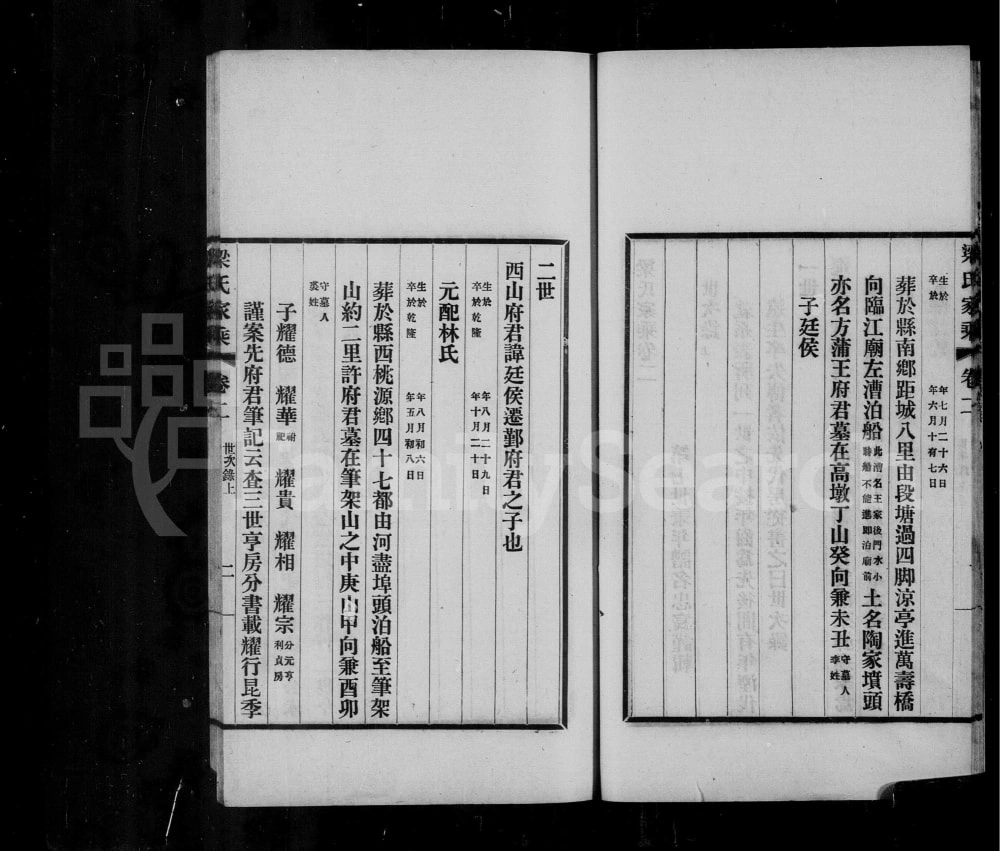 梁氏家乘 卷二
生於 年七月二十六日
卒於 年六月十有七日
葬於縣南鄉距城八里由段塘過四脚涼亭進萬壽橋
向臨江廟左漕泊船此漕名王家後門水小時船不能進即泊廟前土名陶家墳頭
亦名方蒲王府君墓在高墩丁山癸向兼未丑守墓人李姓
子廷侯
二世
西山府君諱廷侯遷鄞府君之子也
生於 年八月二十九日
卒於乾隆 年十月二十日
元配林氏
生於 年八月初六日
卒於乾隆 年五月初八日
葬於縣西桃源鄉四十七都由河盡埠頭泊船至筆架
山約二里許府君墓在筆架山之中庚山甲向兼酉卯
守墓人裘姓
子耀德 耀華祔祀 耀貴 耀相 耀宗分元亨利貞房
謹案先府君筆記云查三世亨房分書載耀行昆季
梁氏家乘 卷二 世次錄上 二
FamilySearch